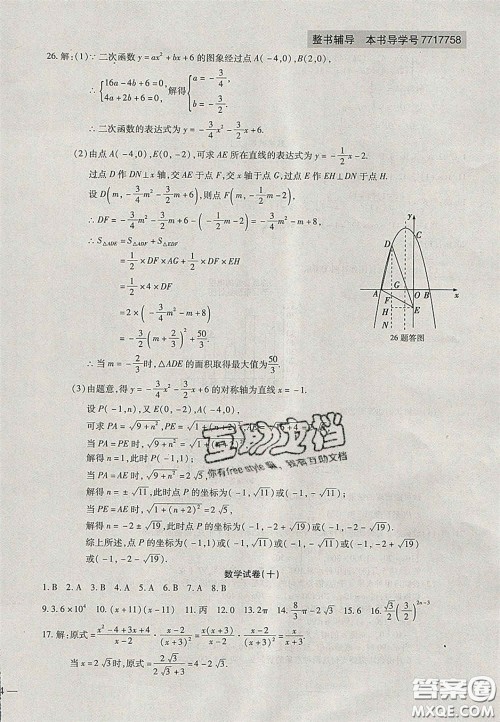 整书辅导 本书导学号7717758
26. 解:(1)∵二次函数 y=ax²+bx+6 的图象经过点 A(-4,0),B(2,0),
∴{16a-4b+6=0, 4a+2b+6=0, 解得{a=-3/4, b=-3/2.
∴二次函数的表达式为 y=-3/4x²-3/2x+6.
(2)由点 A(-4,0),E(0,-2),可求 AE 所在直线的表达式为 y=-1/2x-2.
过点 D 作 DN⊥x 轴,交 AE 于点 F,交 x 轴于点 G,过点 E 作 EH⊥DN 于点 H.
设 D(m,-3/4m²-3/2m+6),则点 F(m,-1/2m-2).
∴DF=-3/4m²-3/2m+6-(-1/2m-2)=-3/4m²-m+8,
∴S△ADE=S△ADF+S△EDF
=1/2×DF×AG+1/2×DF×EH
=1/2×4×DF
=2×(-3/4m²-m+8)
=-3/2(m+2/3)²+50/3.
∴当 m=-2/3时,△ADE 的面积取得最大值为50/3.
y
D
C
A
G
O
B
x
F
H
E
N
26题答图
(3)由题意,得 y=-3/4x²-3/2x+6 的对称轴为直线 x=-1.
设 P(-1,n),又 E(0,-2),A(-4,0),
可求 PA=√9+n²,PE=√1+(n+2)²
当 PA=PE 时,√9+n²=√1+(n+2)²
解得 n=1,此时点 P 的坐标为(-1,1).
当 PA=AE 时,√9+n²=2√5
解得 n=±√11,此时点 P 的坐标为(-1,√11)或(-1,-√11).
当 PE=AE 时,√1+(n+2)²=2√5,
解得 n=-2±√19,此时点 P 的坐标为(-1,-2+√19)或(-1,-2-√19).
综上所述,点 P 的坐标为(-1,1)或(-1,√11)或(-1,-√11)或(-1,-2+√19)或(-1,-2-√19).
互助文档
数学试卷(十)
1. B 2. A 3. A 4. B 5. B 6. B 7. A 8. B
9. 3.6×10⁴ 10. (x+11)(x-11) 11. 丙 12. 2 13. 2π 14. 8/3π-2√3 15. 6 16. √3/2(3/2)²ⁿ⁻³
17. 解:原式=(x²-4+3x+4)/(x-2)·(x-2)/(x+3)²=x(x+3)/(x-2)·(x-2)/(x+3)²=x/(x+3).
当 x=2√3时,原式=2√3/(2√3+3)=4-2√3.
4
答案圈
MXQE.COM